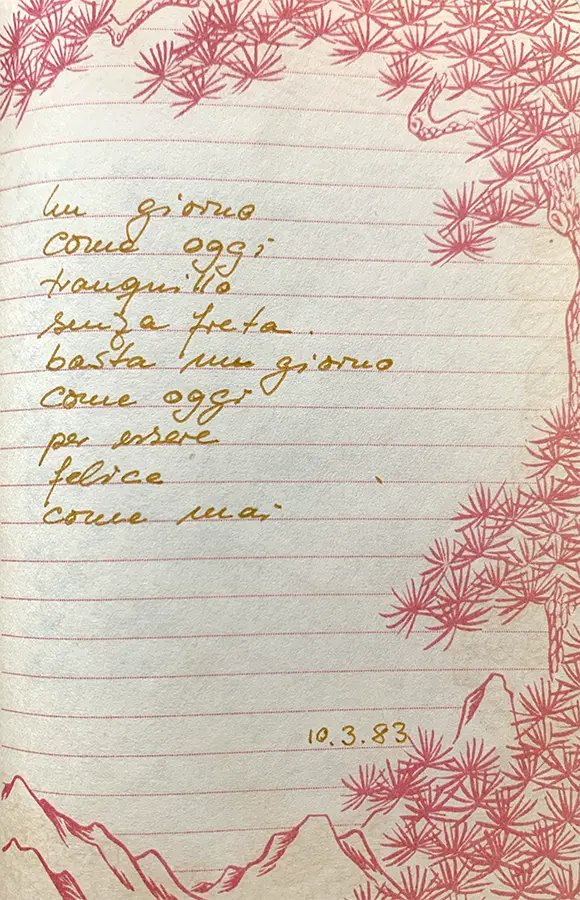 un giorno
come oggi
tranquillo
senza freta.
basta un giorno
come oggi
per essere
felice
come mai
10.3.83